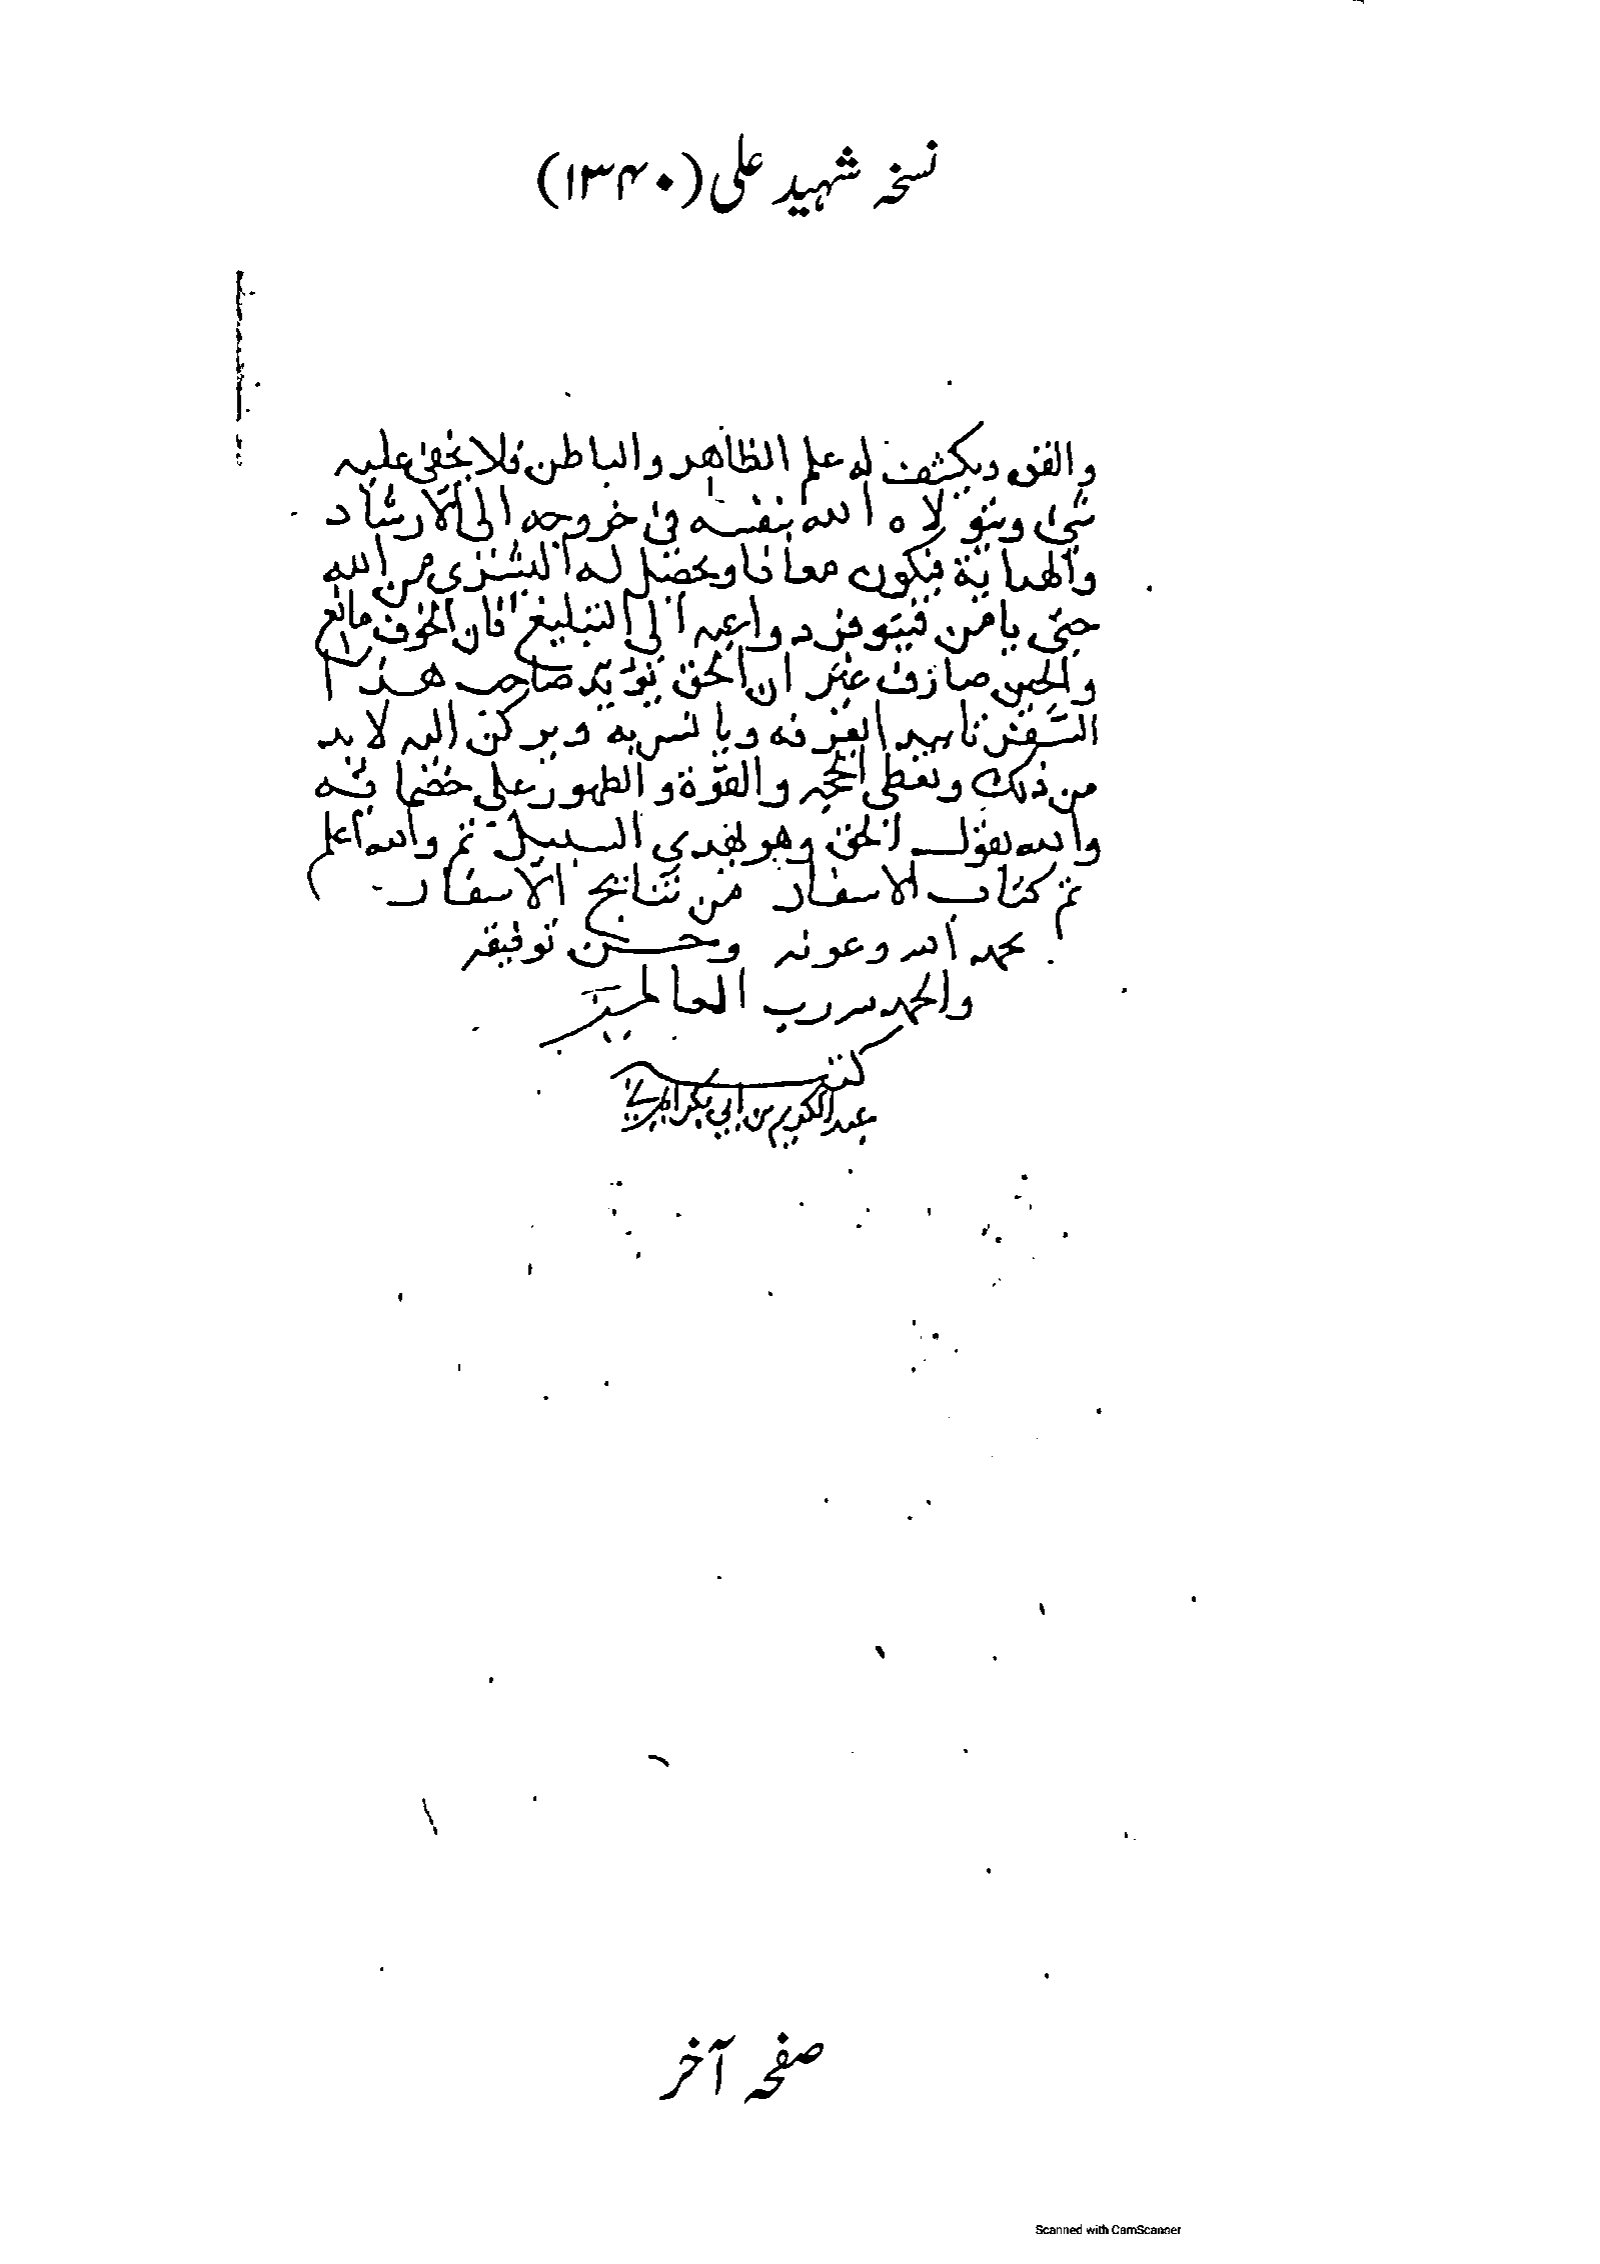 نسخہ شہید علی (۱۳۴۰)
والفرق ويكشف له علم الظاهر والباطن فلا يخفى عليه
شئ ويتولاه الله بنفسه في خروجه الى الارشاد
والهداية فيكون معانا ويحصل له البشرى من الله
حتى يامن فيتوفر دواعيه الى التبليغ فان الخوف مانع
والجبن صارف غير ان الحق يؤيد صاحب هذا
السفر تاييدا يعرفه ويانس به ويركن اليه لا بد
من ذلك ويعطى الحجة والقوة والظهور على خصمايه
والله يقول الحق وهو يهدي السبيل تم والله اعلم
تم كتاب الاسفار من نتايج الاسفار
بحمد الله وعونه وحسن توفيقه
والحمد لله رب العالمين
كتبه
عبد الكريم بن ابي بكر
صفحہ آخر
Scanned with CamScanner